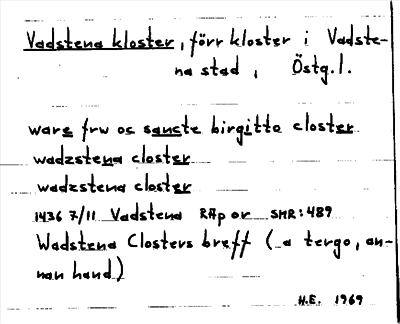 Vadstena kloster, förr kloster i Vadste-
na stad, Östg.l.
ware frw oc sancte birgitte closter
wadzstena closter
wadzstena closter
1436 7/11 Vadstena RAp or SMR:489
Wadstena Closters breff (a tergo, an-
nan hand)
H.E. 1969